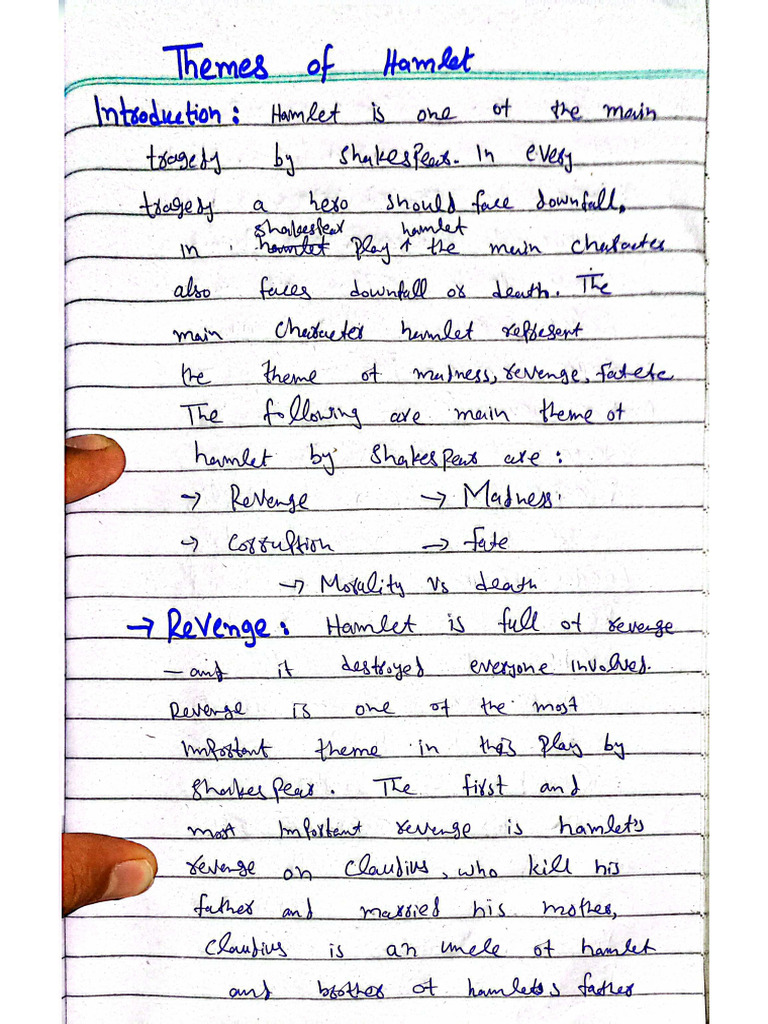 Themes of Hamlet
Introduction: Hamlet is one of the main
tragedy by Shakespear. In every
tragedy a hero should face downfall,
shakespear hamlet
in hamlet play ↑ the main character
also faces downfall or death. The
main character hamlet represent
the theme of madness, revenge, fate etc
The following are main theme of
hamlet by Shakespear are:
→ Revenge → Madness.
→ Corruption → fate
→ Morality Vs death
→ Revenge: Hamlet is full of revenge
- and it destroyed everyone involves.
Revenge is one of the most
important theme in this play by
Shakespear. The first and
most important revenge is hamlet's
revenge on Claudius, who kill his
father and married his mother,
Claudius is an uncle of hamlet
and brother of hamlet's father